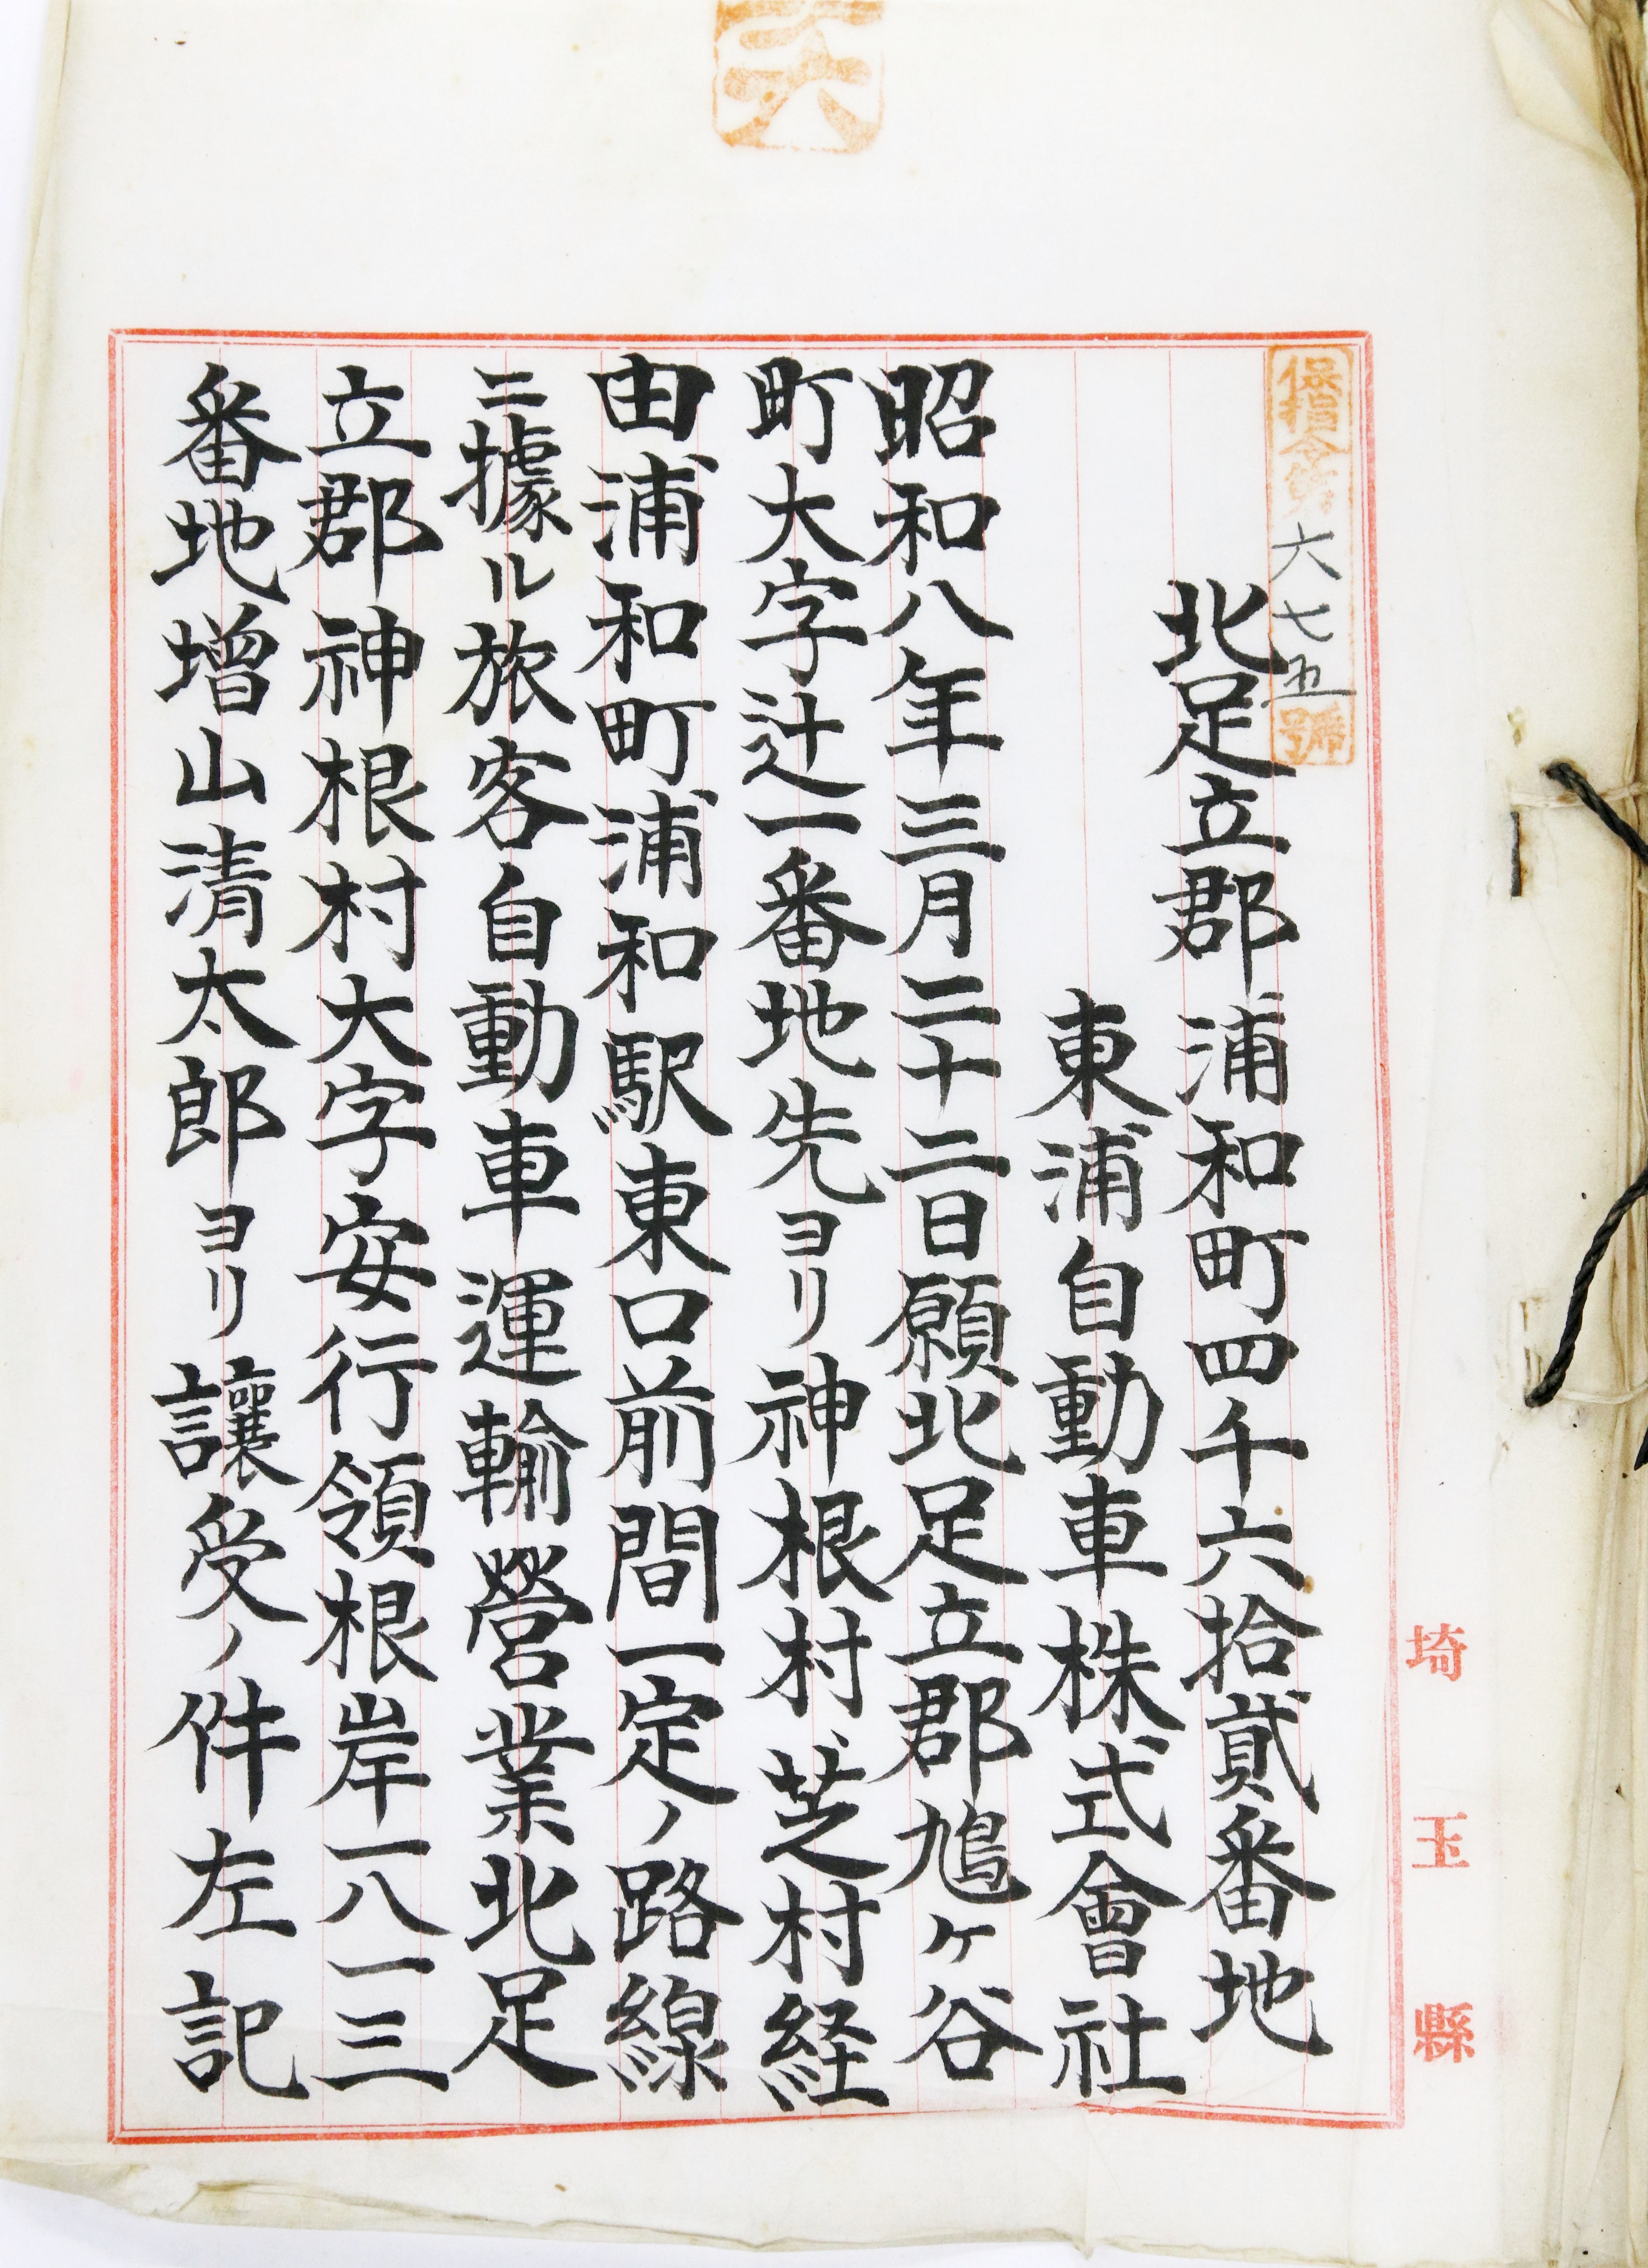 保指令第六七五號
北足立郡浦和町四千六拾貳番地
東浦自動車株式會社
昭和八年三月二十二日願北足立郡鳩ヶ谷
町大字辻一番地先ヨリ神根村芝村経
由浦和町浦和駅東口前間一定ノ路線
ニ據ル旅客自動車運輸營業北足
立郡神根村大字安行領根岸一八一三
番地増山清太郎ヨリ讓受ノ件左記
埼玉縣